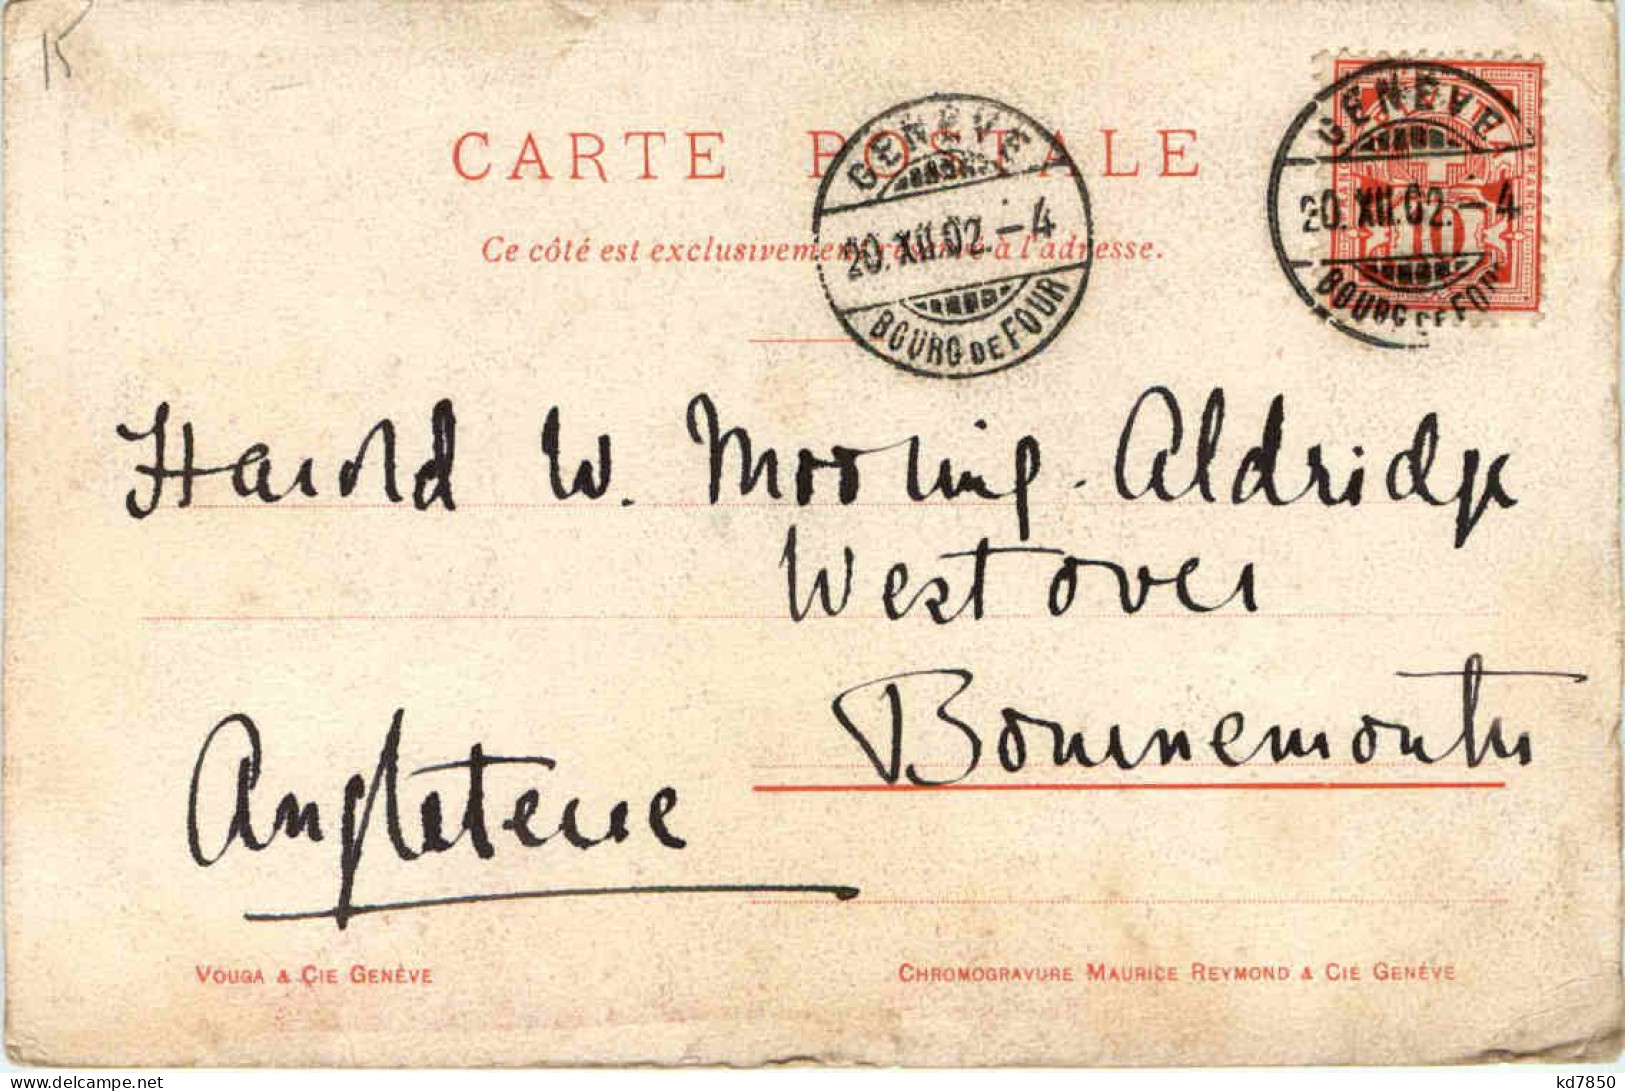 15
CARTE POSTALE
Ce côté est exclusivement réservé à l'adresse.
GENÈVE
20.XII.02.-4
BOURG DE FOUR
GENÈVE
20.XII.02.-4
BOURG DE FOUR
FRANCO
10
Harold W. Mooring-Aldridge
Westover
Bournemouth
Angleterre
VOUGA & CIE GENÈVE
CHROMOGRAVURE MAURICE REYMOND & CIE GENÈVE
delcampe.net
kd7850